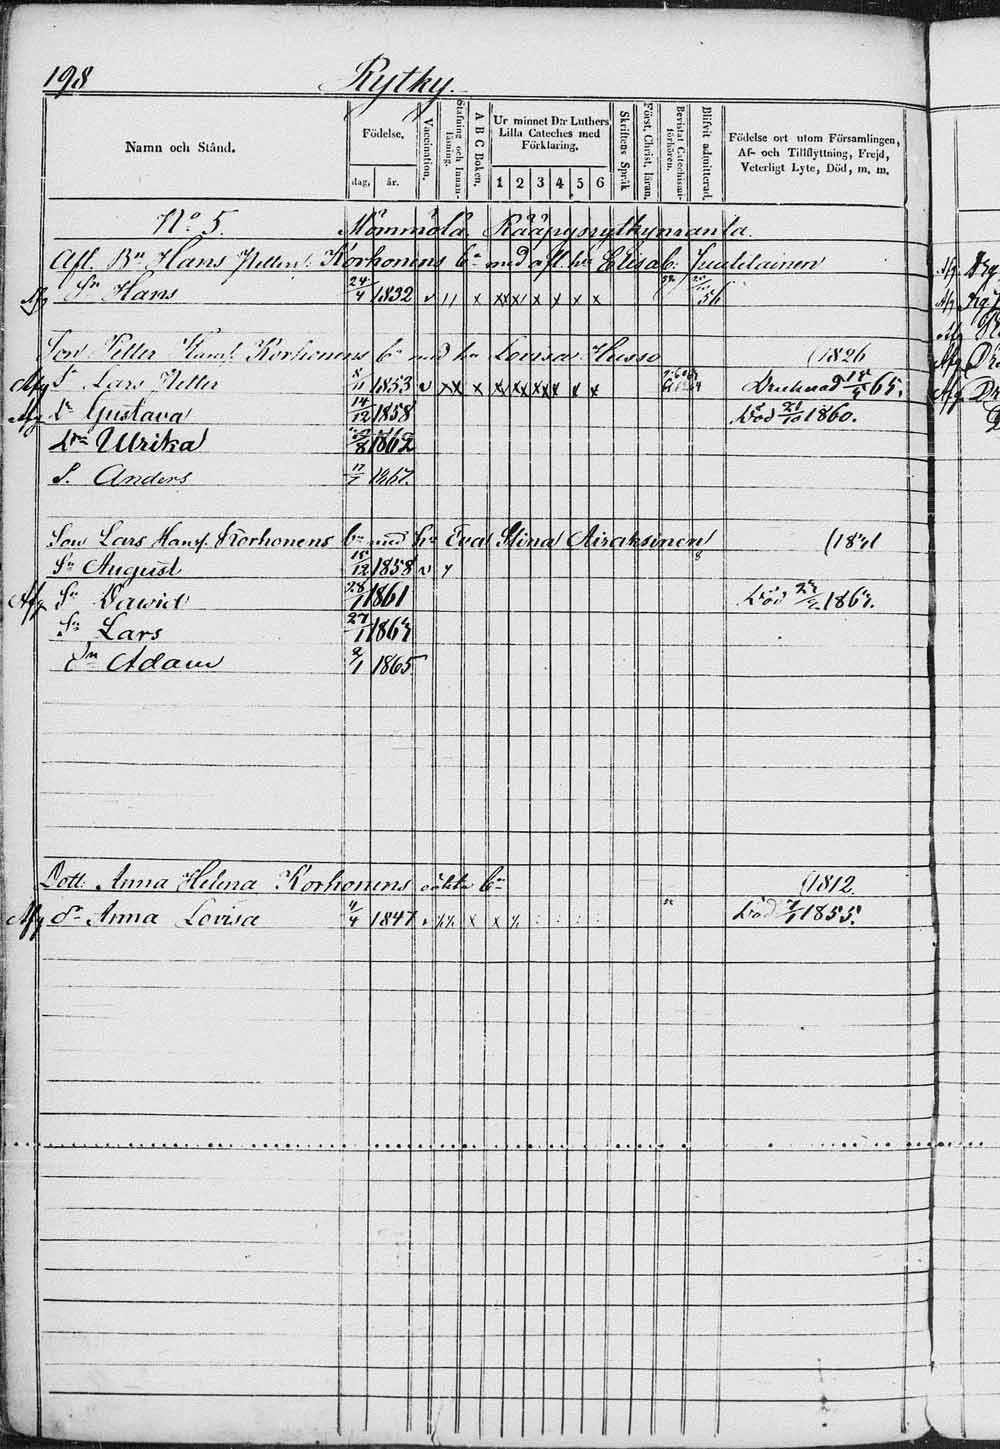 198 Rytky.
Namn och Stånd.
Födelse,
dag, år.
Vaccination.
Stafning och Innanläsning.
A B C Boken.
Ur minnet D:r Luthers Lilla Cateches med Förklaring.
1 2 3 4 5 6
Skriftens Språk
Först. Christ. läran.
Bevistat Catechismiförhören.
Blifvit admitterad.
Födelse ort utom Församlingen, Af- och Tillflyttning, Frejd, Veterligt Lyte, Död, m. m.
No 5. Mömmölä, Rääpysrytkynranta.
Afl. Bn Hans Petters. Korhonens bn med afl. hu Elisab. Juutilainen
Afg Sn Hans 24/4 1832 v
Son Petter Hanss. Korhonens bn med hu Lovisa Husso (1826
Afg S. Lars Petter 8/11 1853 v x x Drunknad 18/5 65.
Afg Dr Gustava 14/12 1858 Död 21/10 1860.
Dr Ulrika /8 1862
S. Anders 17/7 1867.
Son Lars Hanss. Korhonens bn med hu Eva Stina Airaksinen (1831
Sn August 18/12 1858 v
Afg Sn Dawid 28/1 1861 Död 1863.
Sn Lars 27/1 1863
Sn Adam 2/1 1865
Dott. Anna Helena Korhonens oäkta bn (1812.
Afg d. Anna Lovisa /4 1847 Död 1855.